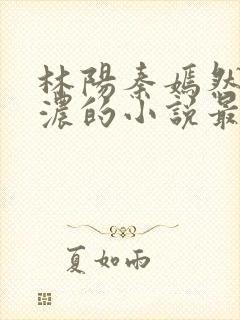 林陽秦嫣然
濃的小說最
夏如雨